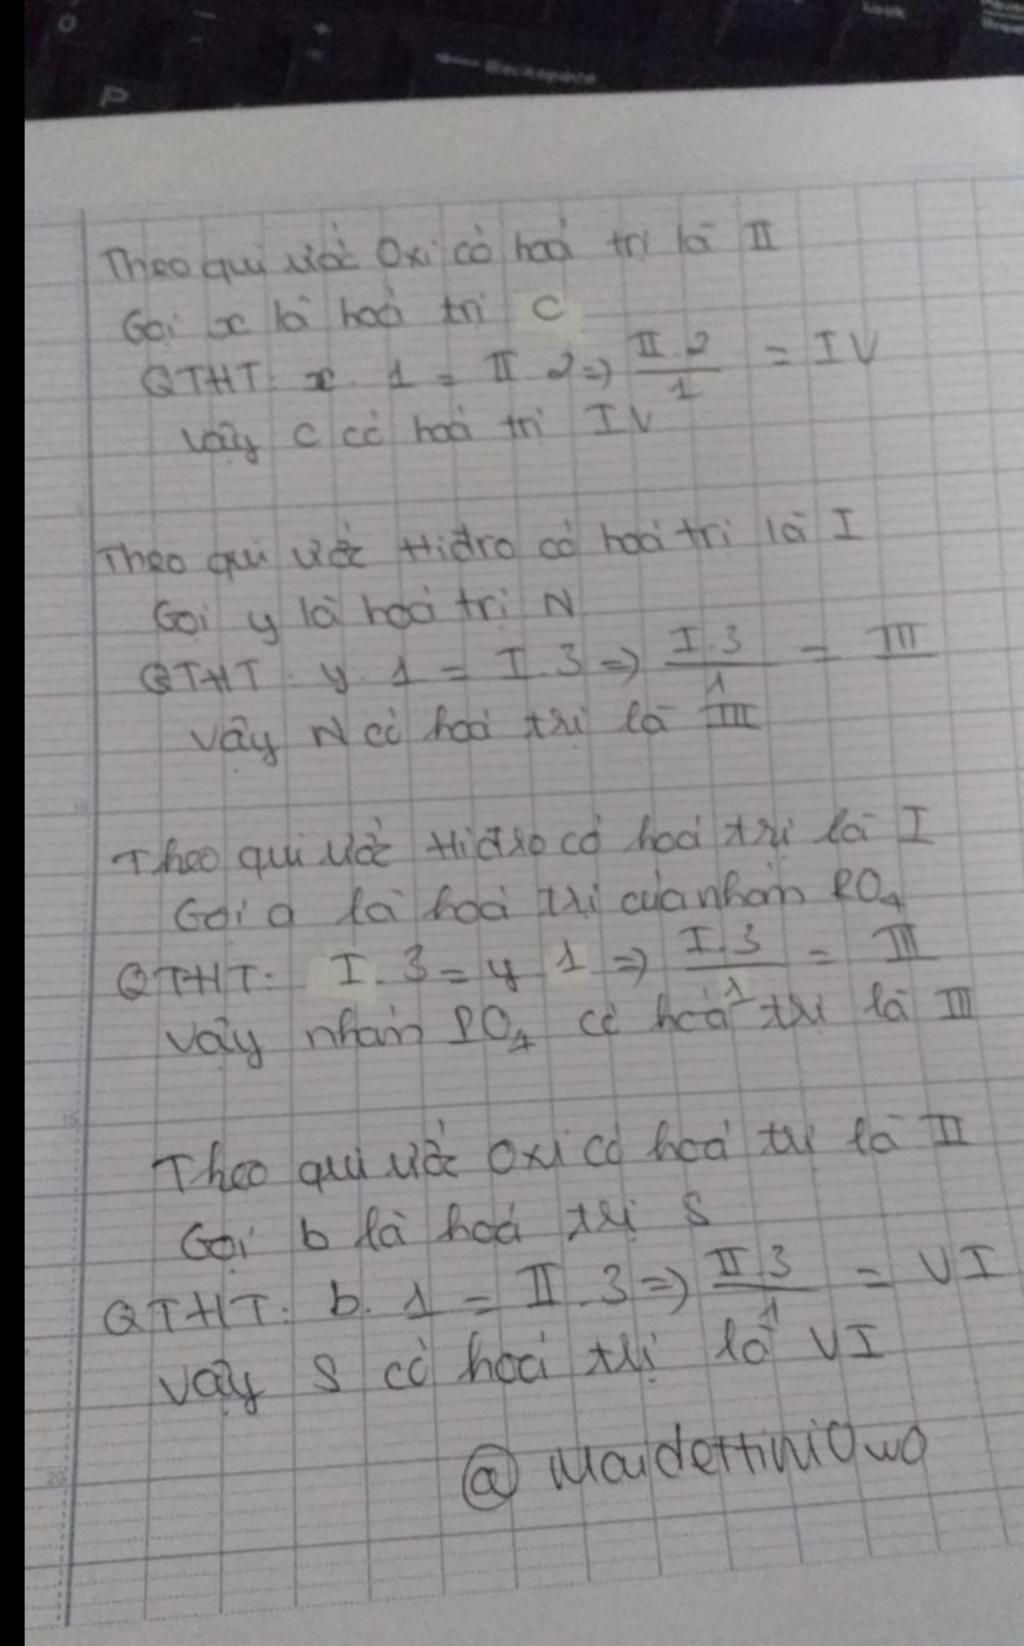 Backspace
P
Theo qui ước Oxi có hoá trị là II
Gọi x là hoá trị C
QTHT: x. 1 = II. 2 => II.2/1 = IV
vậy C có hoá trị IV
Theo qui ước Hiđro có hoá trị là I
Gọi y là hoá trị N
QTHT: y. 1 = I. 3 => I.3/1 = III
vậy N có hoá trị là III
Theo qui ước Hiđro có hoá trị là I
Gọi a là hoá trị của nhóm PO4
QTHT: I. 3 = y 1 => I.3/1 = III
vậy nhóm PO4 có hoá trị là III
Theo qui ước Oxi có hoá trị là II
Gọi b là hoá trị S
QTHT: b. 1 = II. 3 => II.3/1 = VI
vậy S có hoá trị là VI